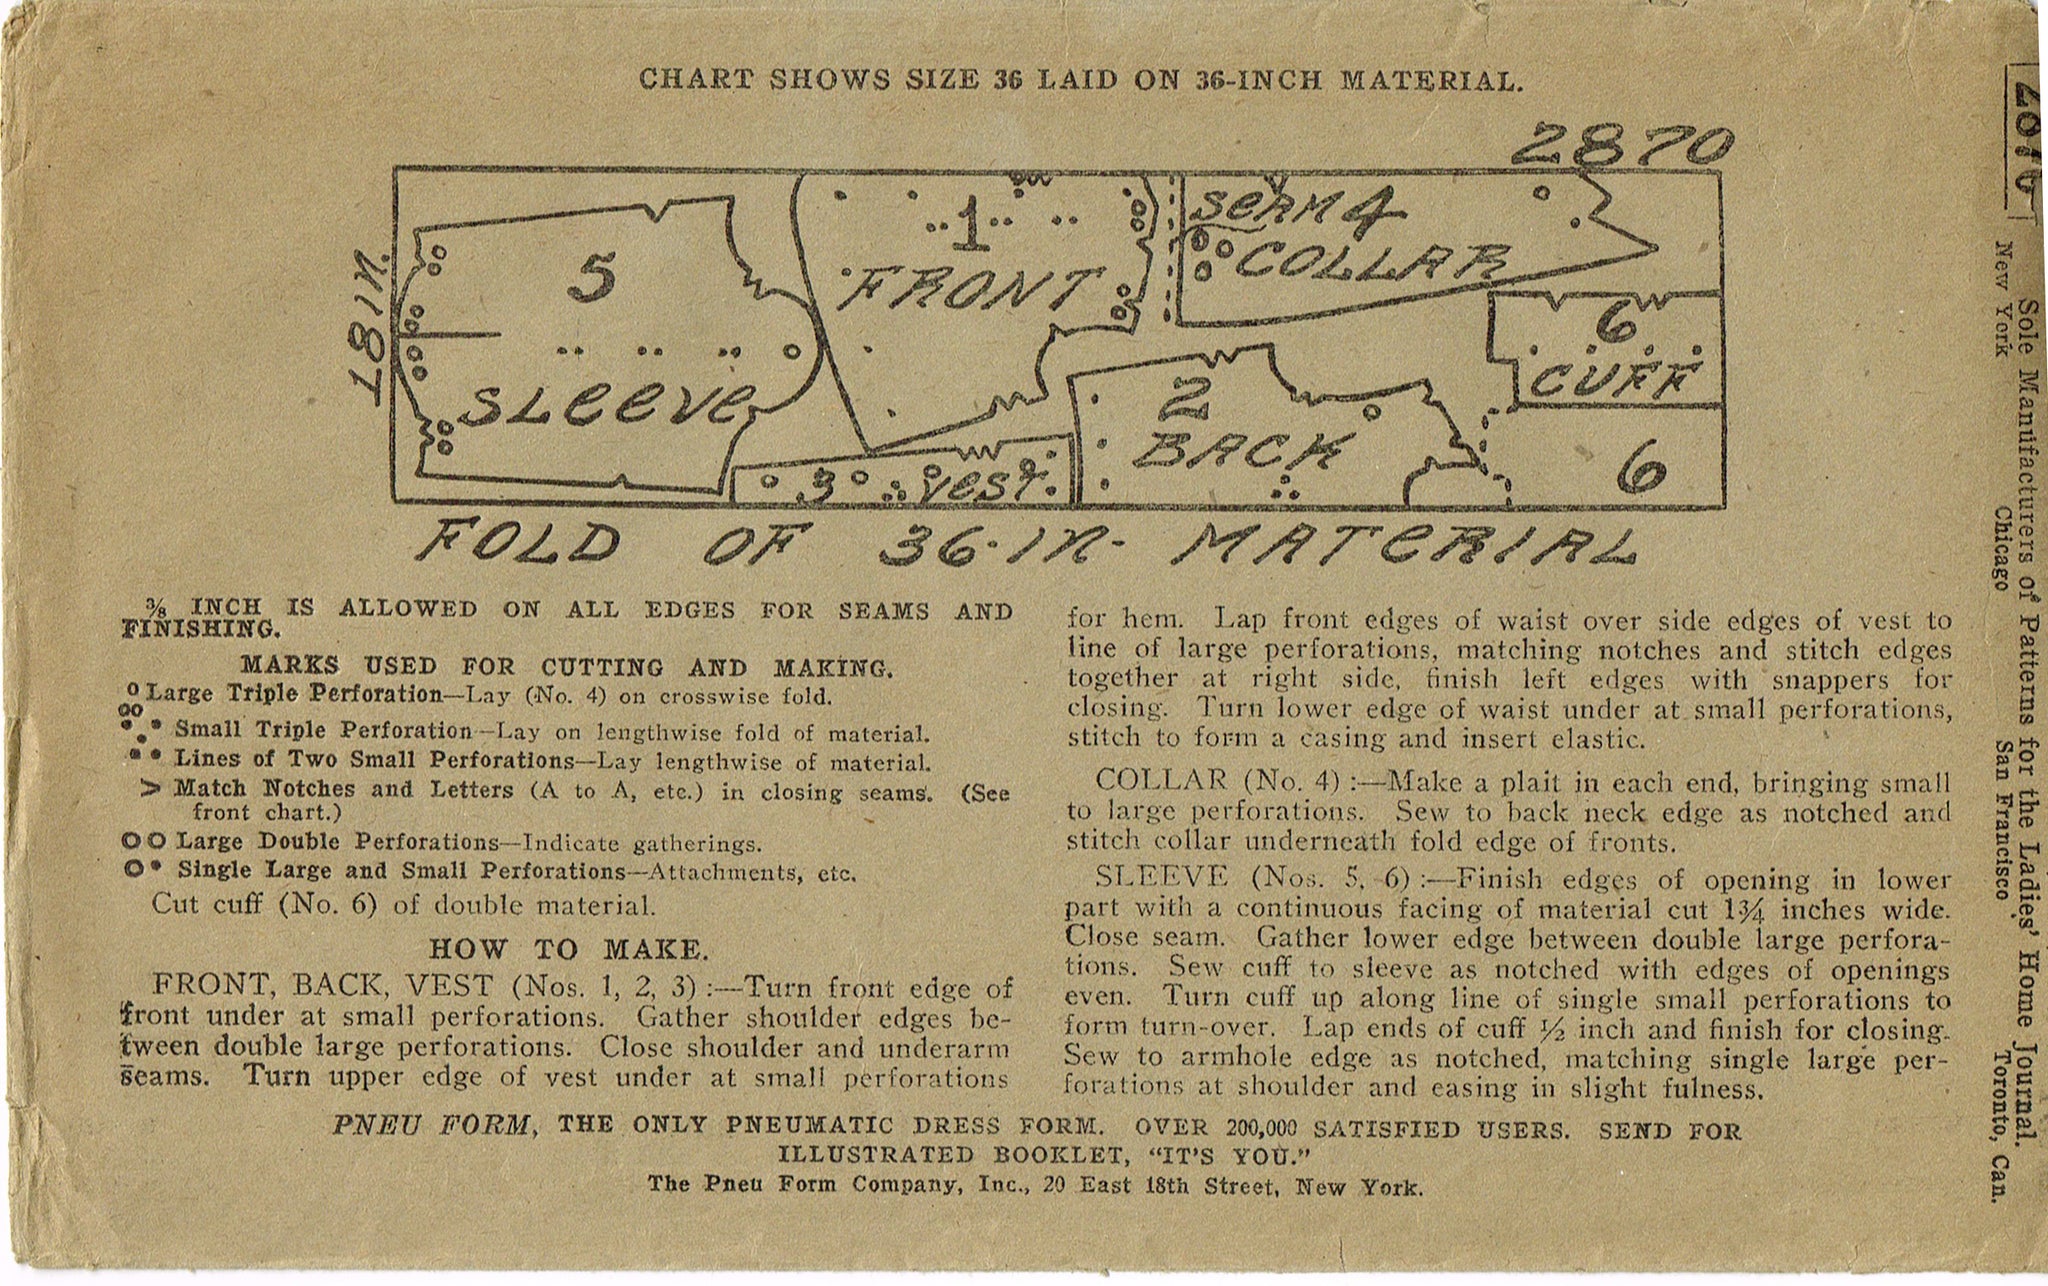 CHART SHOWS SIZE 36 LAID ON 36-INCH MATERIAL.
2870
18 IN.
5
SLEEVE
1
FRONT
SEAM 4
COLLAR
6
CUFF
2
BACK
3 VEST.
6
FOLD OF 36-IN- MATERIAL
⅜ INCH IS ALLOWED ON ALL EDGES FOR SEAMS AND
FINISHING.
MARKS USED FOR CUTTING AND MAKING.
Large Triple Perforation—Lay (No. 4) on crosswise fold.
Small Triple Perforation—Lay on lengthwise fold of material.
Lines of Two Small Perforations—Lay lengthwise of material.
> Match Notches and Letters (A to A, etc.) in closing seams. (See
front chart.)
Large Double Perforations—Indicate gatherings.
Single Large and Small Perforations—Attachments, etc.
Cut cuff (No. 6) of double material.
HOW TO MAKE.
FRONT, BACK, VEST (Nos. 1, 2, 3) :—Turn front edge of
front under at small perforations. Gather shoulder edges be-
tween double large perforations. Close shoulder and underarm
seams. Turn upper edge of vest under at small perforations
for hem. Lap front edges of waist over side edges of vest to
line of large perforations, matching notches and stitch edges
together at right side, finish left edges with snappers for
closing. Turn lower edge of waist under at small perforations,
stitch to form a casing and insert elastic.
COLLAR (No. 4) :—Make a plait in each end, bringing small
to large perforations. Sew to back neck edge as notched and
stitch collar underneath fold edge of fronts.
SLEEVE (Nos. 5, 6) :—Finish edges of opening in lower
part with a continuous facing of material cut 1¾ inches wide.
Close seam. Gather lower edge between double large perfora-
tions. Sew cuff to sleeve as notched with edges of openings
even. Turn cuff up along line of single small perforations to
form turn-over. Lap ends of cuff ½ inch and finish for closing.
Sew to armhole edge as notched, matching single large per-
forations at shoulder and easing in slight fulness.
PNEU FORM, THE ONLY PNEUMATIC DRESS FORM. OVER 200,000 SATISFIED USERS. SEND FOR
ILLUSTRATED BOOKLET, “IT'S YOU.”
The Pneu Form Company, Inc., 20 East 18th Street, New York.
2870
Sole Manufacturers of Patterns for the Ladies' Home Journal.
New York Chicago San Francisco Toronto, Can.